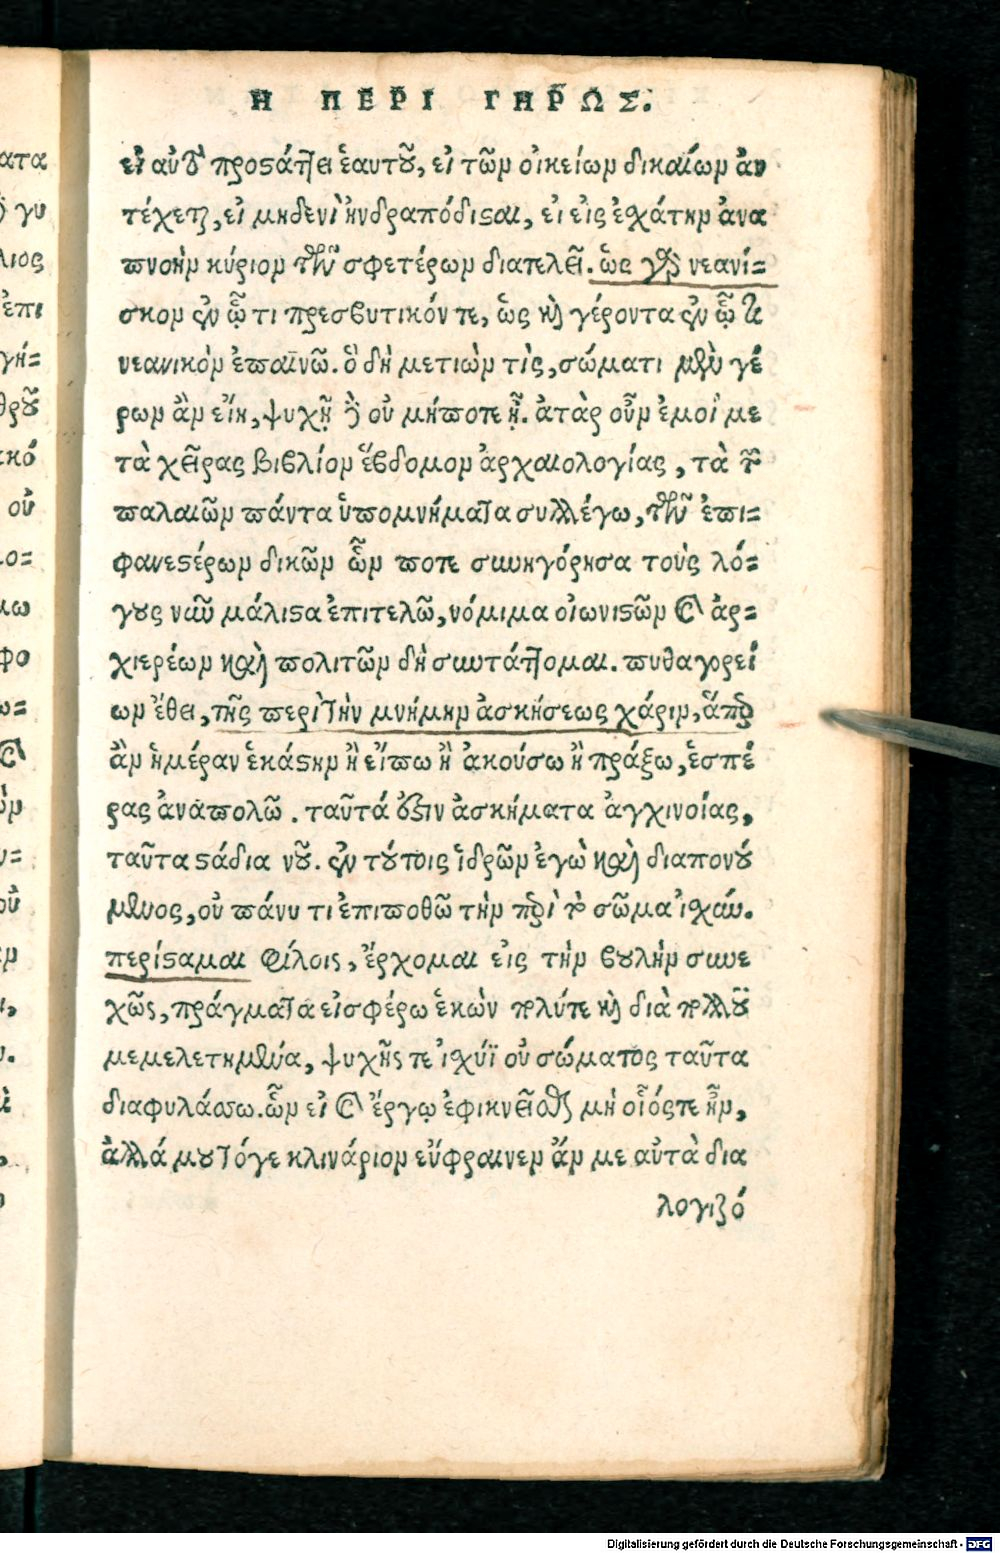 Η ΠΕΡΙ ΓΗΡΩΣ.
εἰ αὐτὸ προστάττει ἑαυτοῦ, εἰ τῶν οἰκείων δικαίων ἀν
τέχεται, εἰ μηδενὶ ἠνδραπόδισαι, εἰ εἰς ἐχάτην ἀνα
πνοὴν κύριον τῶν σφετέρων διατελεῖ. ὡς γὰρ νεανί=
σκον ἐν ᾧ τι πρεσβυτικόν τε, ὡς καὶ γέροντα ἐν ᾧ τι
νεανικὸν ἐπαϊνῶ. ὃ δὴ μετιὼν τὶς, σώματι μὲν γέ
ρων ἂν εἴη, ψυχῇ δὲ οὐ μήποτε ᾖ. ἀτὰρ οὖν ἐμοὶ με
τὰ χεῖρας βιβλίον ἕβδομον ἀρχαιολογίας, τὰ τῶν
παλαιῶν πάντα ὑπομνήματα συλλέγω, τῶν ἐπι=
φανεστέρων δικῶν ὧν ποτε συνηγόρησα τοὺς λό=
γους ναῦν μάλιστα ἐπιτελῶ, νόμιμα οἰωνιστῶν καὶ ἀρ=
χιερέων καὶ πολιτῶν δὴ συντάττομαι. πυθαγορεί
ων ἔθει, τῆς περὶ τὴν μνήμην ἀσκήσεως χάριν, ἅπερ
ἂν ἡμέραν ἑκάστην ἢ εἴπω ἢ ἀκούσω ἢ πράξω, ἑσπέ
ρας ἀναπολῶ. ταῦτά ἐστιν ἀσκήματα ἀγχινοίας,
ταῦτα στάδια νοῦ. ἐν τούτοις ἱδρῶν ἐγὼ καὶ διαπονού
μενος, οὐ πάνυ τι ἐπιποθῶ τὴν περὶ τὸ σῶμα ἰχύν.
περίσταμαι φίλοις, ἔρχομαι εἰς τὴν βουλὴν συνε
χῶς, πράγματα εἰσφέρω ἑκὼν πολύ τε καὶ διὰ πολλοῦ
μεμελετημένα, ψυχῆς τε ἰχύϊ οὐ σώματος ταῦτα
διαφυλάσσω. ὧν εἰ καὶ ἔργῳ ἐφικνεῖσθαι μὴ οἷόςτε ἦν,
ἀλλά μου τόγε κλινάριον εὔφραινεν ἄν με αὐτὰ δια
λογιζό
Digitalisierung gefördert durch die Deutsche Forschungsgemeinschaft - DFG